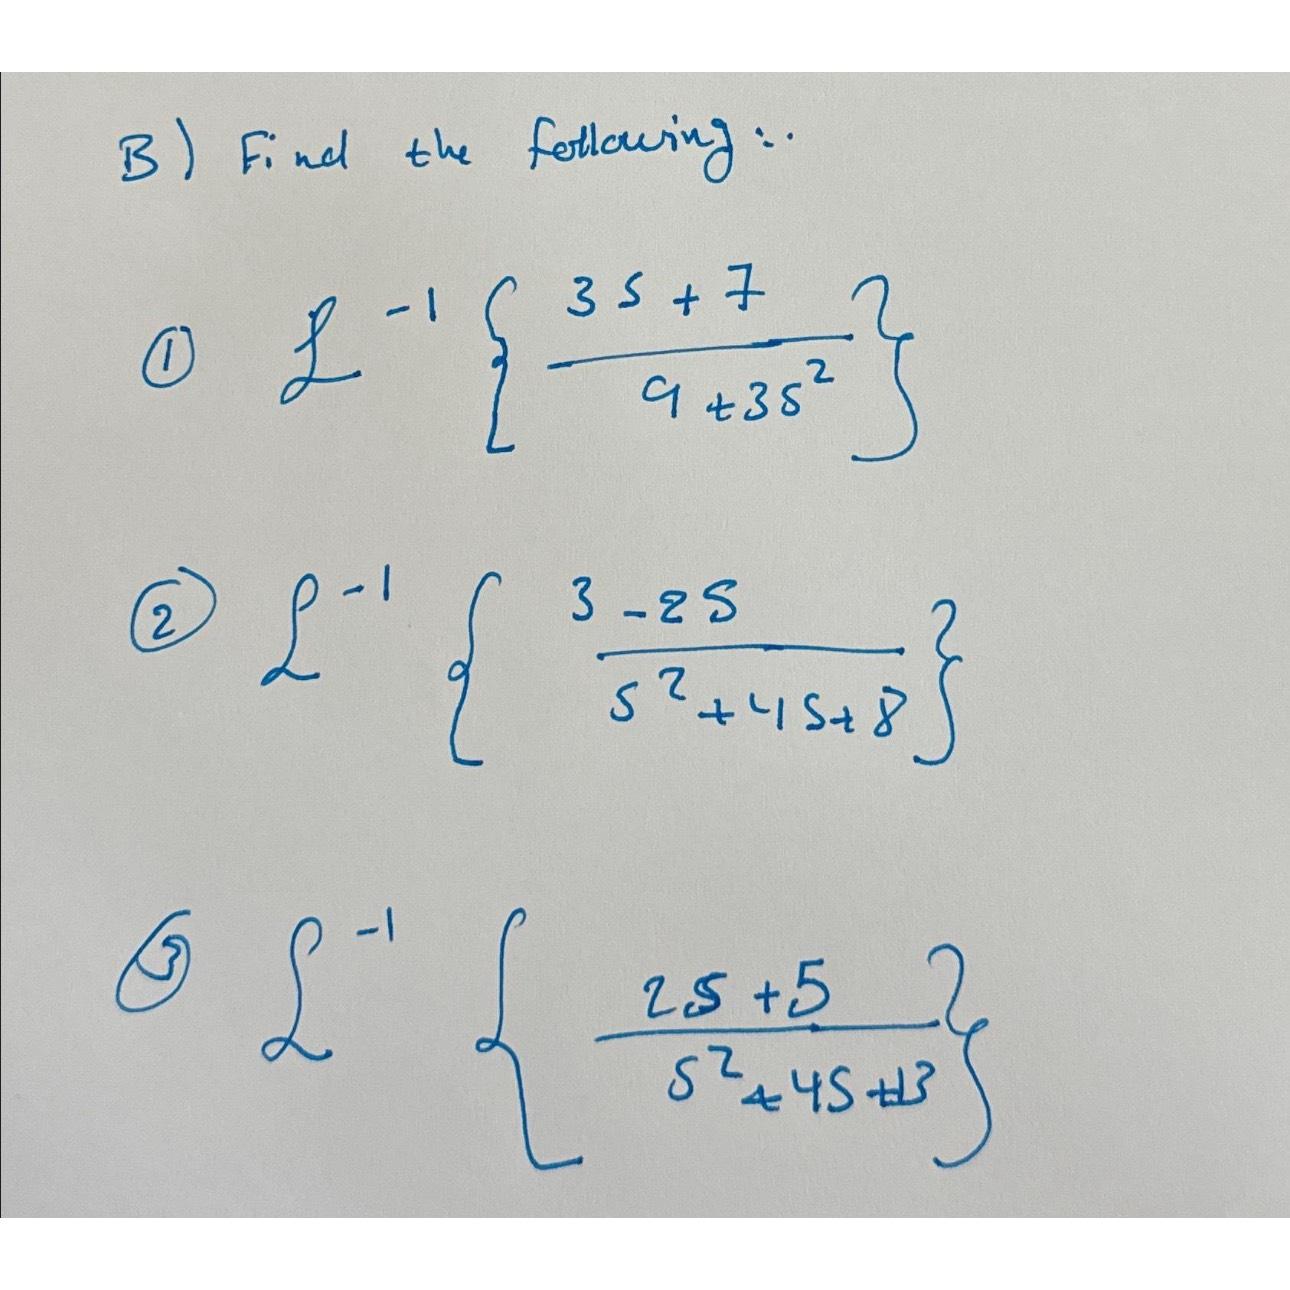 B) Find the following:.
① ℒ⁻¹ { 3s + 7 / 9 + 3s² }
② ℒ⁻¹ { 3 - 2s / s² + 4s + 8 }
③ ℒ⁻¹ { 2s + 5 / s² + 4s + 13 }